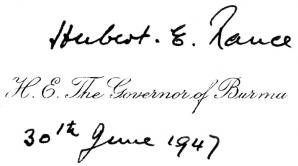 Hubert. E. Rance
H. E. The Governor of Burma
30th June 1947